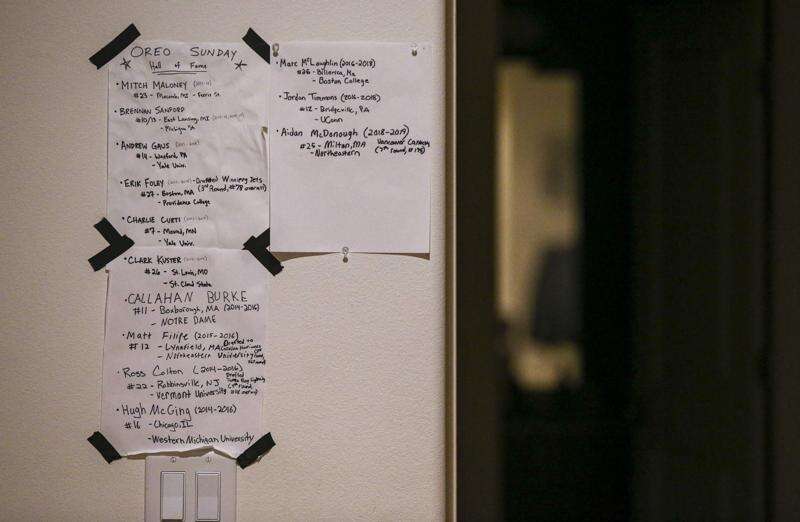 OREO SUNDAY
Hall of Fame
• MITCH MALONEY
#23 - Macomb, MI - Ferris St.
• BRENNAN SANFORD
#10/13 - East Lansing, MI
- Michigan St.
• ANDREW GAUS
#14 - Wexford, PA
- Yale Univ.
• ERIK FOLEY - Drafted Winnipeg Jets
#27 - Boston, MA (3rd Round, #78 overall)
- Providence College
• CHARLIE CURTI
#7 - Mound, MN
- Yale Univ.
• CLARK KUSTER
#26 - St. Louis, MO
- St. Cloud State
• CALLAHAN BURKE
#11 - Boxborough, MA (2014-2016)
- NOTRE DAME
• Matt Filipe (2015-2016)
#12 - Lynnfield, MA Drafted to
- Northeastern University
• Ross Colton (2014-2016)
#22 - Robbinsville, NJ Drafted Tampa Bay Lightning
- Vermont University
• Hugh McGing (2014-2016)
#16 - Chicago, IL
- Western Michigan University
• Marc McLaughlin (2016-2018)
#26 - Billerica, Ma
- Boston College
• Jordan Timmons (2016-2018)
#12 - Bridgeville, PA
- UConn
• Aidan McDonough (2018-2019)
#25 - Milton, MA Vancouver Canucks
- Northeastern (7th round, #195)